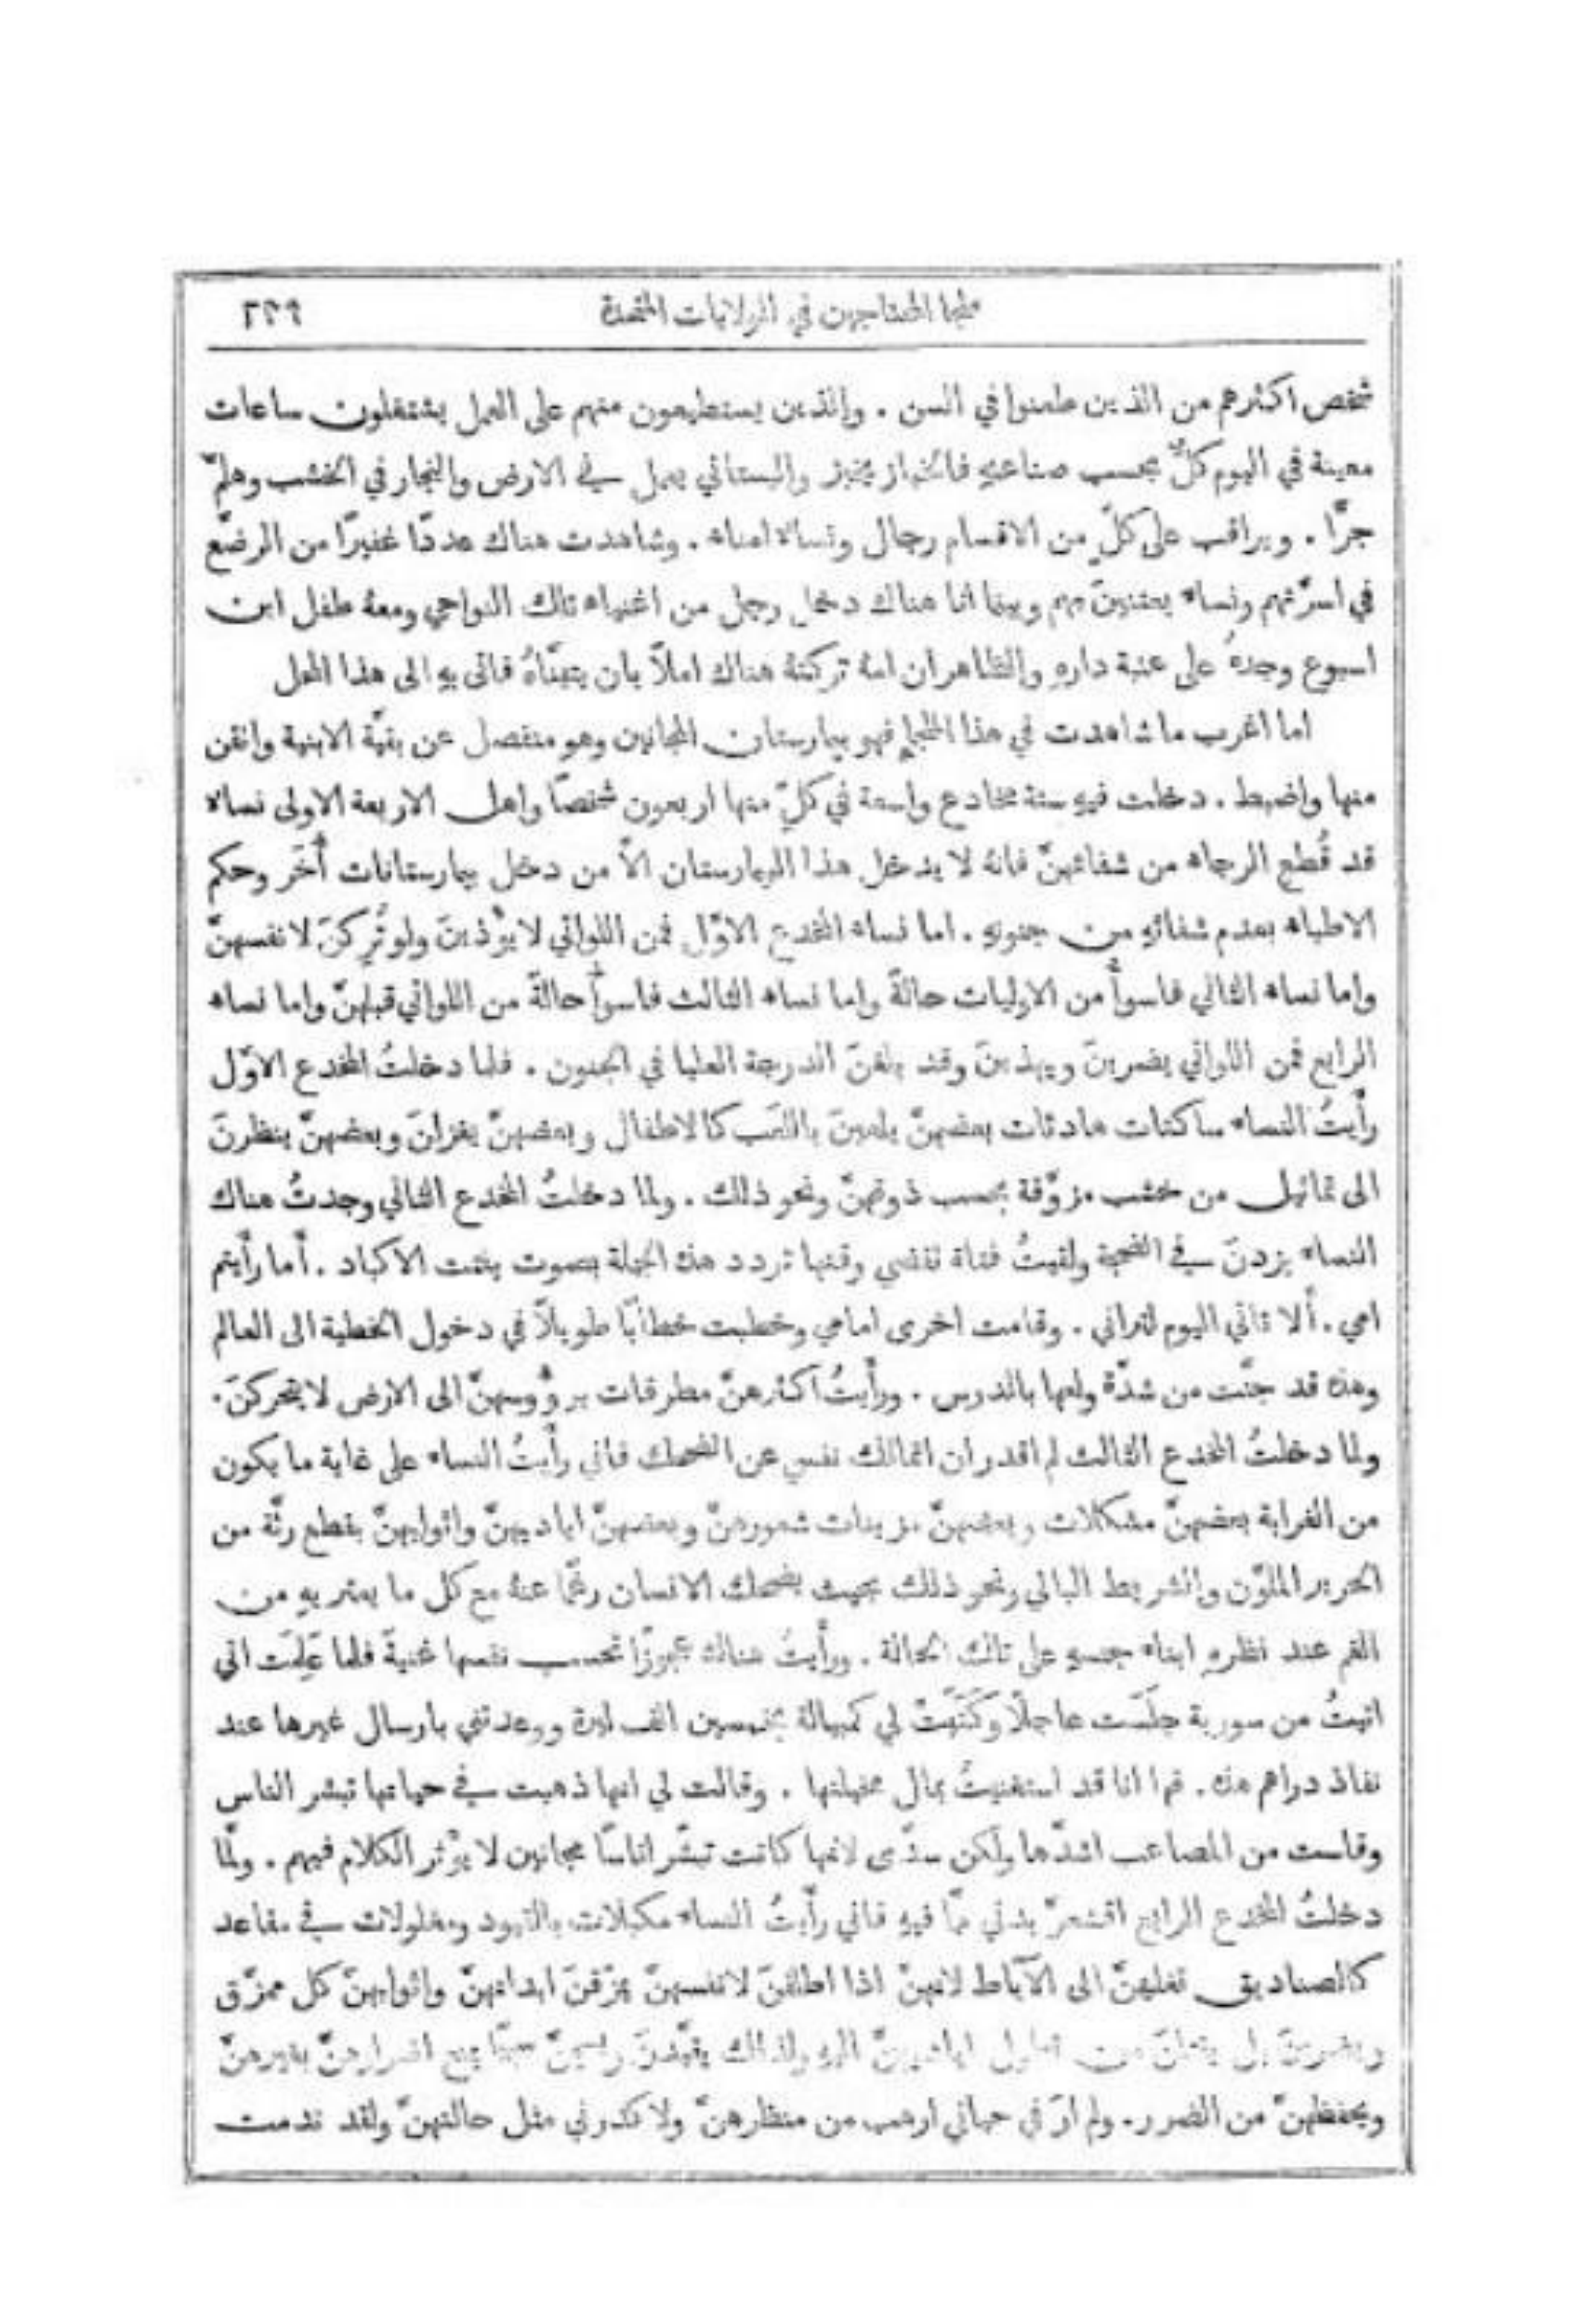 ملجا المحتاجين في الولايات المتحدة ٢٣٩
شخص اكثرهم من الذين طعنوا في السن . والذين يستطيعون منهم على العمل يشتغلون ساعات
معينة في اليوم كلٌّ بحسب صناعتهِ فالخباز يخبز والبستاني يعمل في الارض والنجار في الخشب وهلمَّ
جرًّا . ويراقب على كلٍّ من الاقسام رجال ونساء امناء . وشاهدت هناك عددًا غفيرًا من الرضَّع
في اسرَّتهم ونساء يعتنينَ بهم وبينما انا هناك دخل رجل من اغنياء تلك النواحي ومعهُ طفل ابن
اسبوع وجدهُ على عتبة دارهِ والظاهر ان امهُ تركتهُ هناك املاً بان يتبنَّاهُ فاتى بهِ الى هذا المحل
اما اغرب ما شاهدت في هذا الملجإِ فهو بيمارستان المجانين وهو منفصل عن بقيَّة الابنية واتقن
منها واضبط . دخلت فيهِ ستة مخادع واسعة في كلٍّ منها اربعون شخصًا واهل الاربعة الاولى نساء
قد قُطع الرجاء من شفائهنَّ فانهُ لا يدخل هذا البيمارستان الَّا من دخل بيمارستانات أُخَر وحكم
الاطباء بعدم شفائهِ من جنونهِ . اما نساء المخدع الاوَّل فمن اللواتي لا يؤْذينَ ولو تُركنَ لانفسهنَّ
واما نساء الثاني فاسوأُ من الاوليات حالةً واما نساء الثالث فاسوأُ حالةً من اللواتي قبلهنَّ واما نساء
الرابع فمن اللواتي يضربنَ ويهذينَ وقد بلغنَ الدرجة العليا في الجنون . فلما دخلتُ المخدع الاوَّل
رأَيتُ النساء ساكتات هادئات بعضهنَّ يلعبنَ باللعَب كالاطفال وبعضهنَّ يغزلنَ وبعضهنَّ ينظرنَ
الى تماثيل من خشب مزوَّقة بحسب ذوقهنَّ ونحو ذلك . ولما دخلتُ المخدع الثاني وجدتُ هناك
النساء يزدنَ في الضجة ولقيتُ فتاة تقضي وقتها تردد هذه الجملة بصوت يفتت الاكباد . أَما رأَيتم
امي . أَلا تاتي اليوم لتراني . وقامت اخرى امامي وخطبت خطابًا طويلاً في دخول الخطية الى العالم
وهذه قد جنَّت من شدَّة ولعها بالدرس . ورأَيتُ اكثرهنَّ مطرقات برؤُوسهنَّ الى الارض لا يتحركنَ .
ولما دخلتُ المخدع الثالث لم اقدر ان اتمالك نفسي عن الضحك فاني رأَيتُ النساء على غاية ما يكون
من الغرابة بعضهنَّ مشكلات وبعضهنَّ مزينات شعورهنَّ وبعضهنَّ اياديهنَّ واثوابهنَّ بقطع رثَّة من
الحرير الملوَّن والشريط البالي ونحو ذلك بحيث يضحك الانسان رغمًا عنهُ مع كل ما يعتريهِ من
الغم عند نظرهِ ابناء جنسهِ على تلك الحالة . ورأَيتُ هناك عجوزًا تحسب نفسها غنيةً فلما عَلِمَت اني
اتيتُ من سورية جلَسَت عاجلًا وكَتَبَتْ لي كمبيالة بخمسين الف ليرة ووعدتني بارسال غيرها عند
نفاذ دراهم هذه . فها انا قد استغنيتُ بمال مخيلتها . وقالت لي انها ذهبت في حياتها تبشر الناس
وقاست من المصاعب اشدَّها ولكن سدًى لانها كانت تبشّر اناسًا مجانين لا يؤْثر الكلام فيهم . ولمَّا
دخلتُ المخدع الرابع اقشعرَّ بدني ممَّا فيهِ فاني رأَيتُ النساء مكبلات بالقيود ومغلولات في مقاعد
كالصناديق تغليهنَّ الى الآباط لانهنَّ اذا اطلقنَ لانفسهنَّ يمزّقنَ ابدانهنَّ واثوابهنَّ كل ممزَّق
ويضربنَ بل يقتلنَ من تطول اياديهنَّ اليهِ ولذلك يقيَّدنَ اضرارهنَّ بغيرهنَّ
ويحفظهنَّ من الضرر . ولم ارَ في حياتي ارهب من منظرهنَّ ولا كدرني مثل حالتهنَّ ولقد ندمت